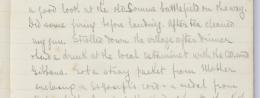 a good look at the old Somme battlefield on the way.
Did some firing before landing. After tea cleaned
my gun. Strolled down the village after dinner
& had a drink at the local estaminet with the
Gibbons. Got a stray packet from Mother
enclosing a & a medal from